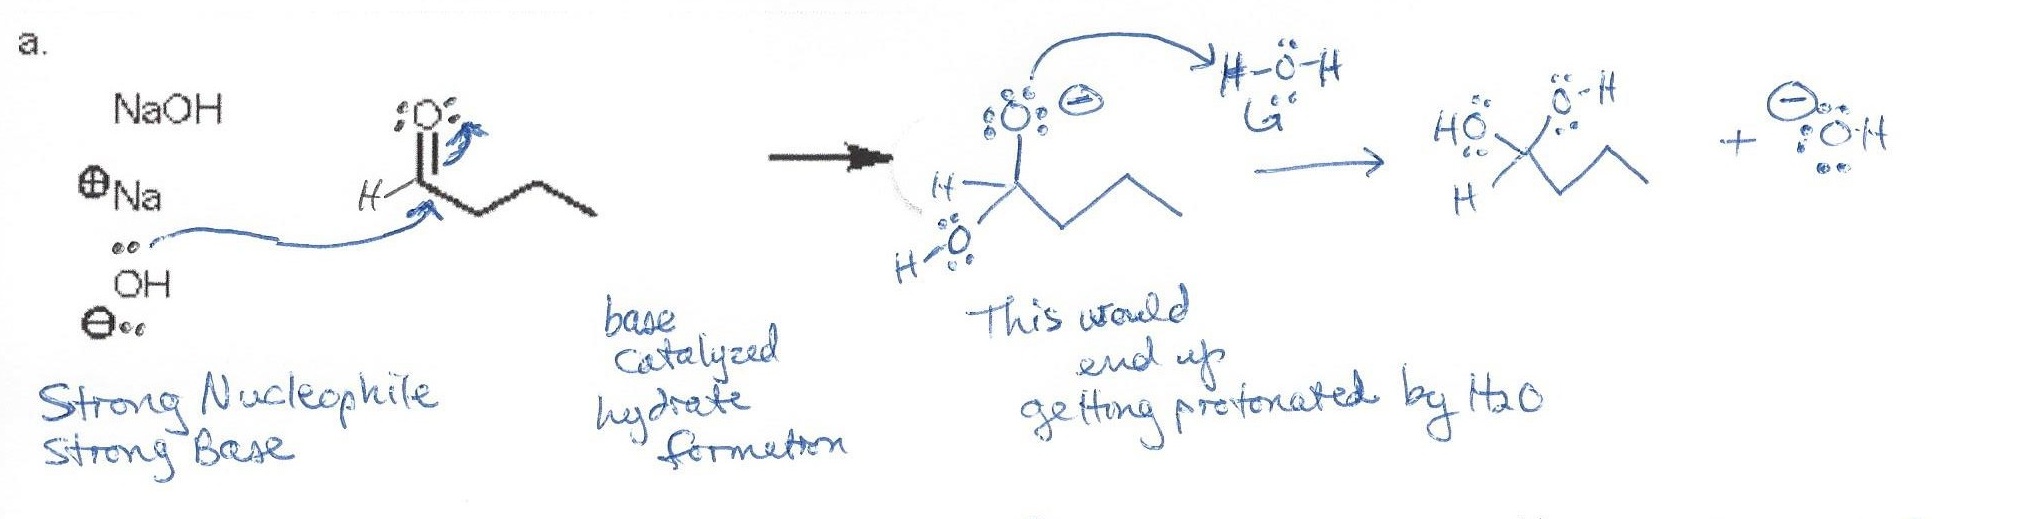 a.
NaOH
⊕Na
OH
⊖
Strong Nucleophile
Strong Base
:O:
H
base
catalyzed
hydrate
formation
:O: ⊖
H
H-O
H-O-H
This would
end up
getting protonated by H2O
HO
O-H
H
+
⊖
:O-H